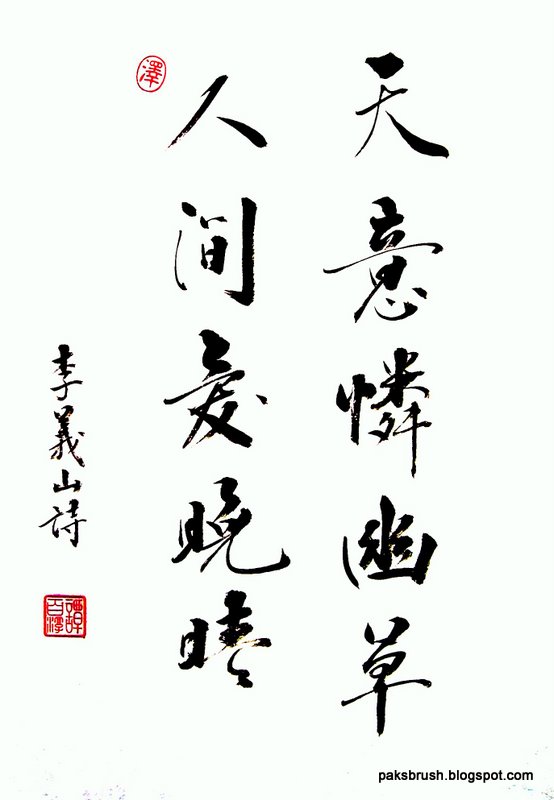 天意憐幽草
人間愛晚晴
澤
李義山詩
譚百澤
paksbrush.blogspot.com